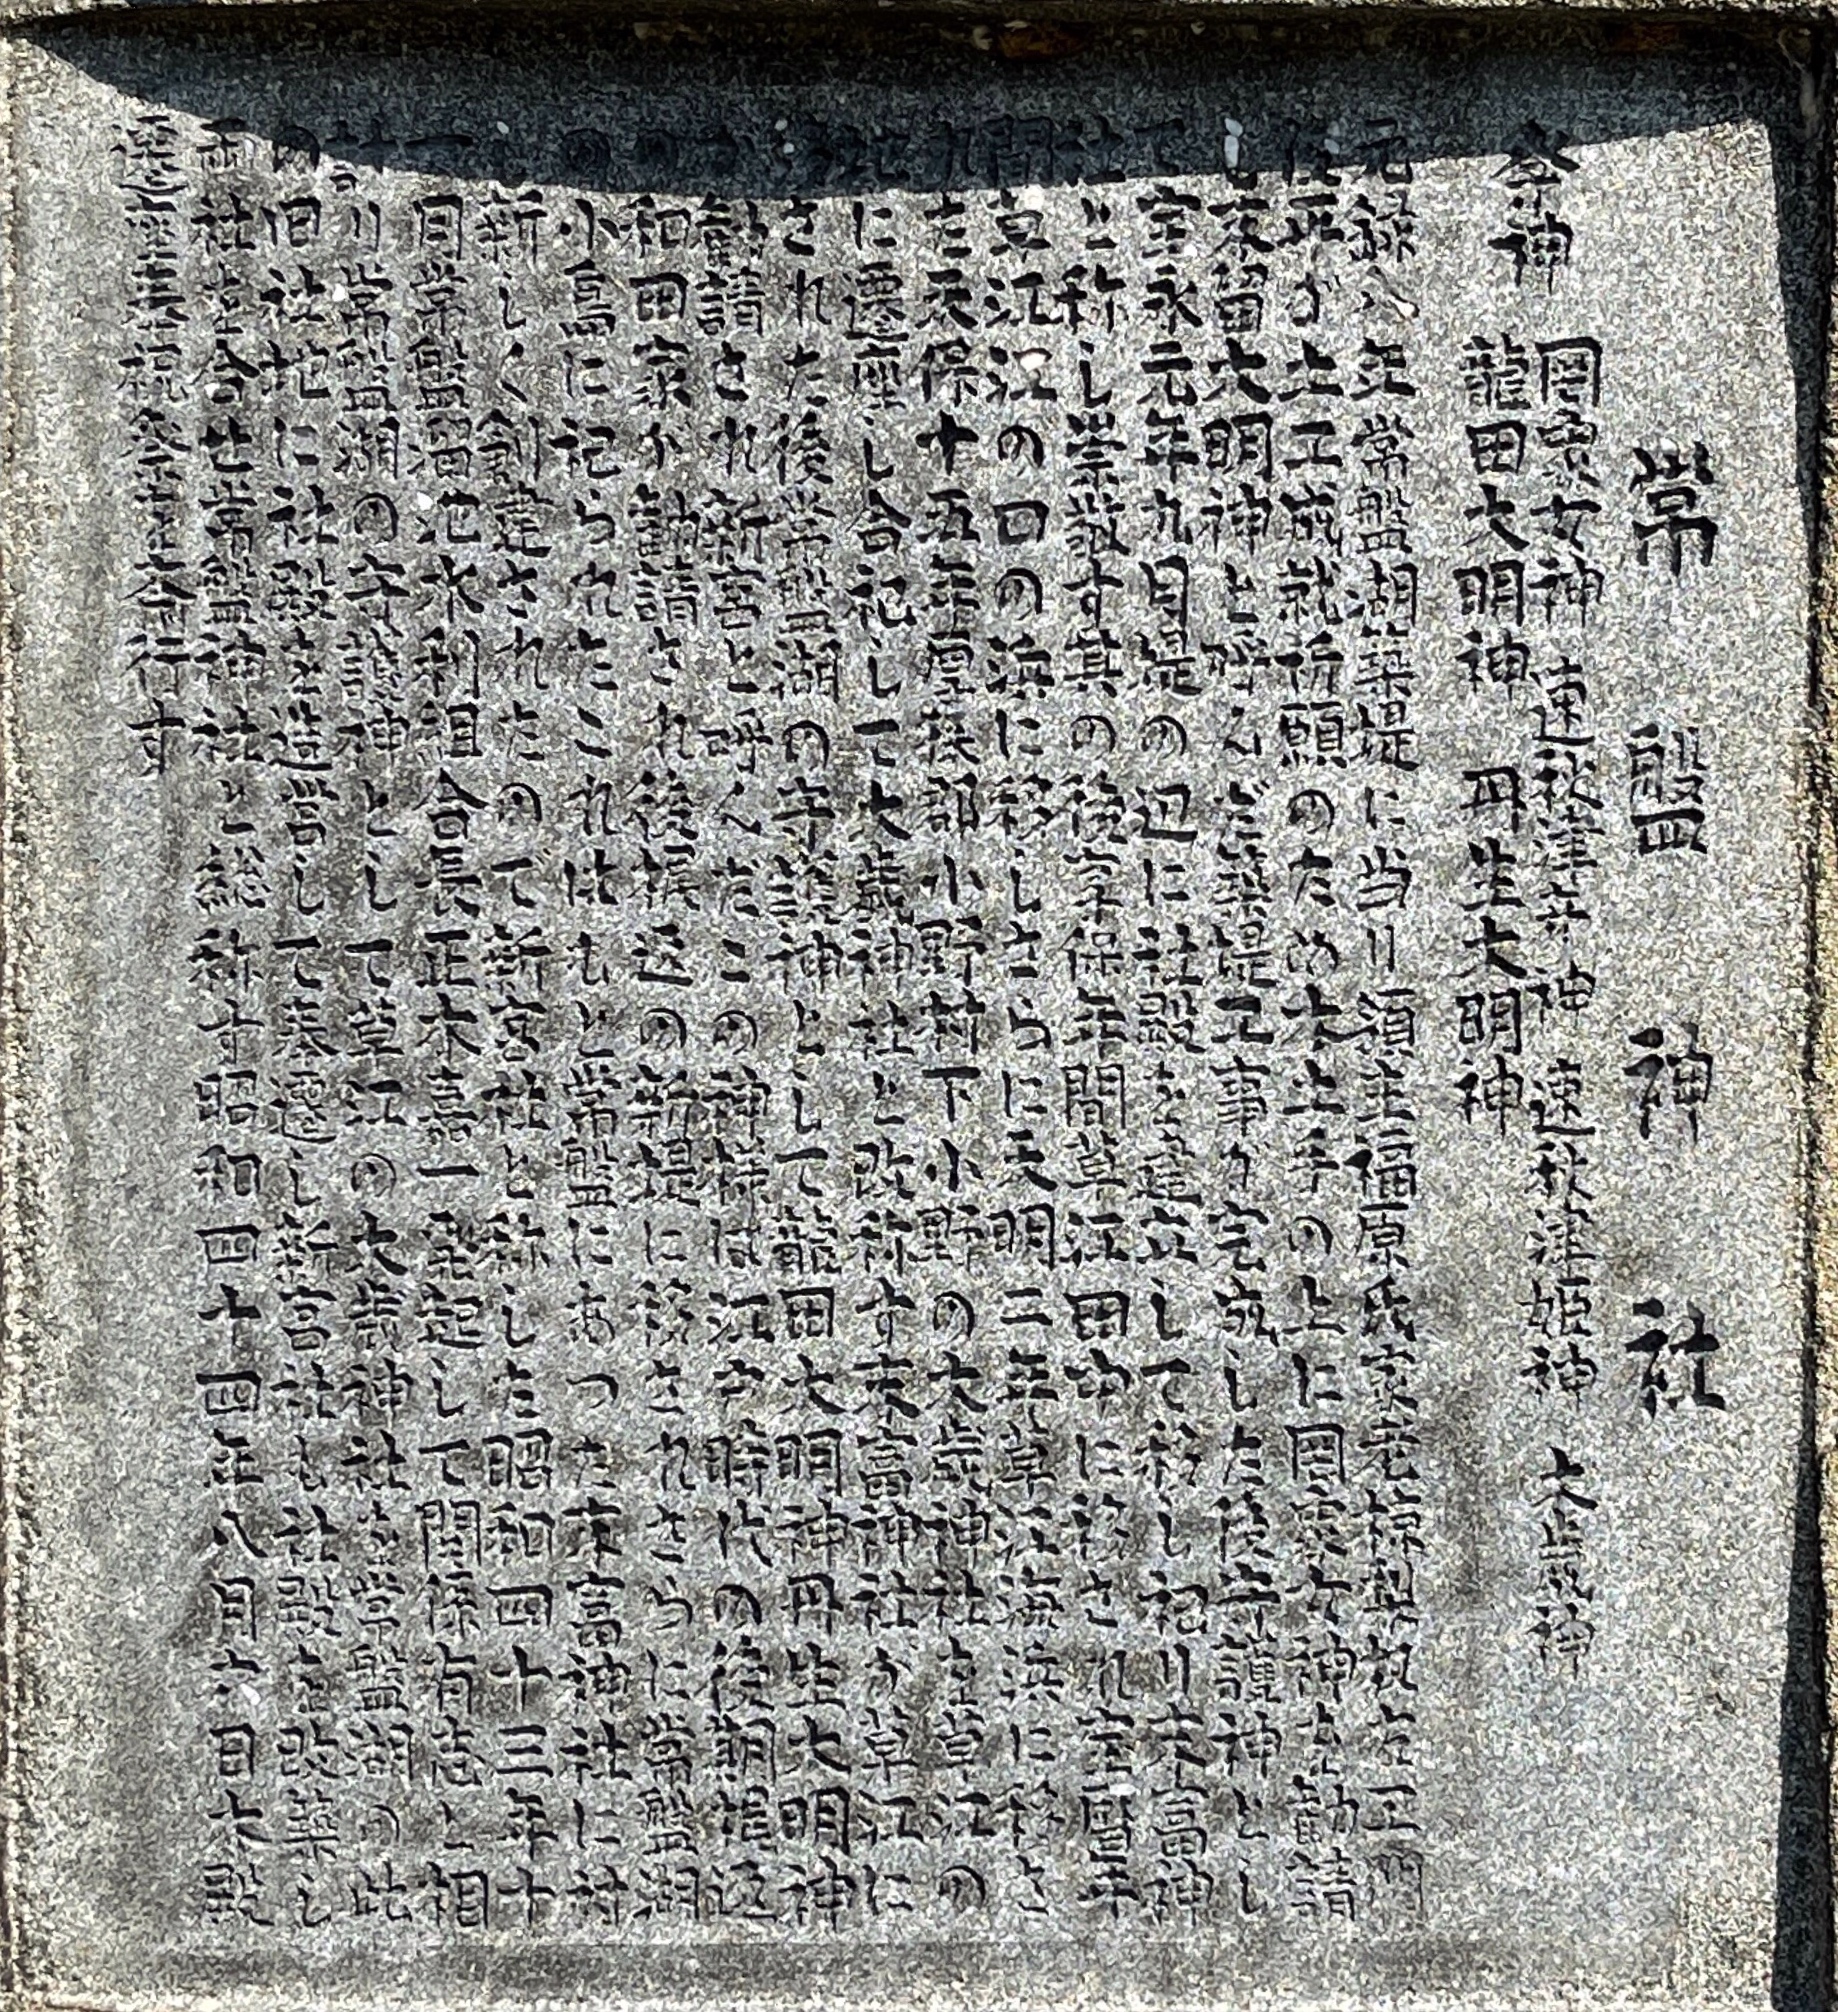 常盤神社
祭神 罔象女神 速秋津彦神 速秋津姫神 大歳神
龍田大明神 丹生大明神
元禄八年常盤湖築堤に当り領主福原氏家老椋梨权左工門
俊平が土工成就祈願のため本土手の上に罔象女神を勧請
し末留大明神と呼んだ築堤工事が完成した後守護神とし
て宝永元年九月堤の辺に社殿を建立して移し祀り末富神
社と称し崇敬す其の後享保年間草江田中に移され宝暦年
間草江江の口の浜に移しさらに天明二年草江海浜に移さ
れた天保十五年厚狭郡小野村下小野の大歳神社を草江の
地に遷座し合祀して大歳神社と改称す末富神社が草江に
移された後常盤湖の守護神として龍田大明神丹生大明神
が勧請され新宮と呼んだこの神様は江戸時代の後期堤返
の和田家が勧請され後堤返の新堤に移されさらに常盤湖
の小島に記られたこれはもと常盤にあった末富神社に対
し新しく創建されたので新宮社と称した昭和四十三年十
一月常盤溜池水利組合長正木嘉一発起して関係有志と相
計り常盤湖の守護神として草江の大歳神社を常盤湖の此
の旧社地に社殿を造営して奉遷し新宮社も社殿を改築し
両社を合せ常盤神社と総称す昭和四十四年八月六日本殿
遷座奉祝祭を斎行す